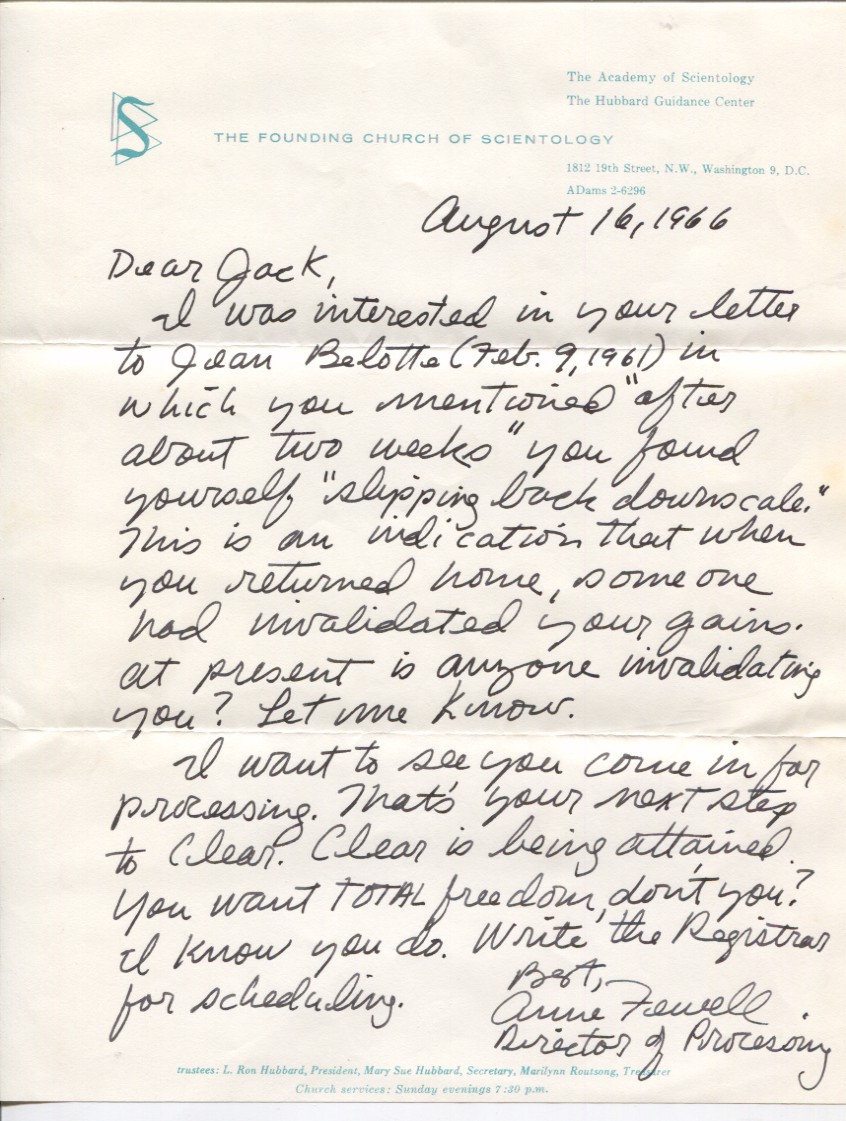 The Academy of Scientology
The Hubbard Guidance Center
S
THE FOUNDING CHURCH OF SCIENTOLOGY
1812 19th Street, N.W., Washington 9, D.C.
ADams 2-6296
August 16, 1966
Dear Jack,
I was interested in your letter
to Jean Belotte (Feb. 9, 1961) in
which you mentioned "after
about two weeks" you found
yourself "slipping back downscale."
This is an indication that when
you returned home, someone
had invalidated your gains.
At present is anyone invalidating
you? Let me know.
I want to see you come in for
processing. That's your next step
to Clear. Clear is being attained.
You want TOTAL freedom, don't you?
I know you do. Write the Registrar
for scheduling.
Best,
Anne Fewell
Director of Processing
trustees: L. Ron Hubbard, President, Mary Sue Hubbard, Secretary, Marilynn Routsong, Treasurer
Church services: Sunday evenings 7:30 p.m.